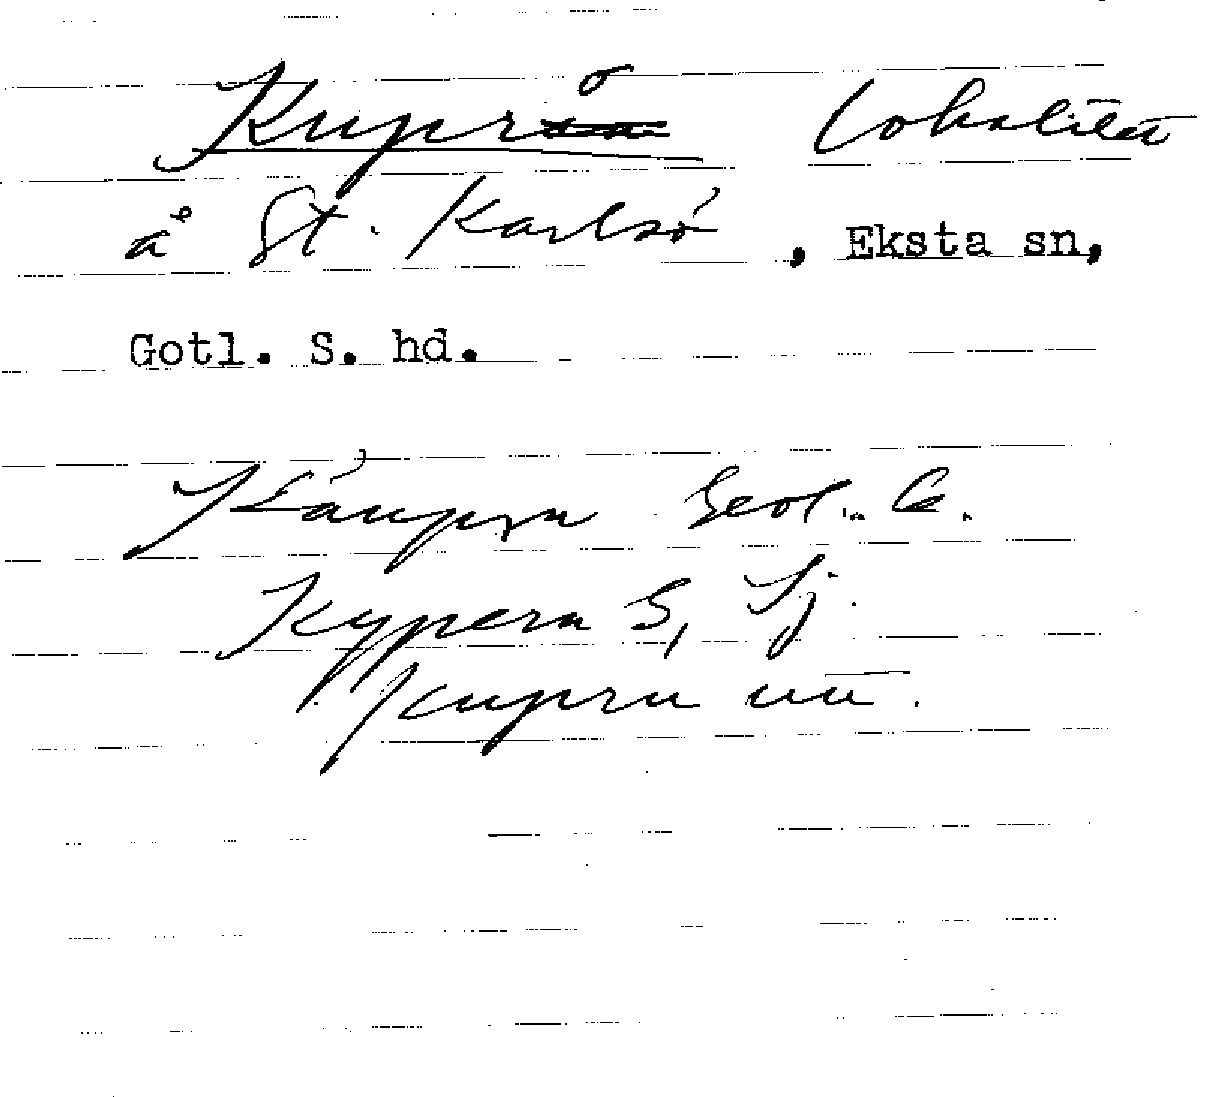 Kupro lokaliteu
å St. Karlsö, Eksta sn,
Gotl. S. hd.
Kaupru Geol. C.
Kypera S, Sj.
Kupru uu.